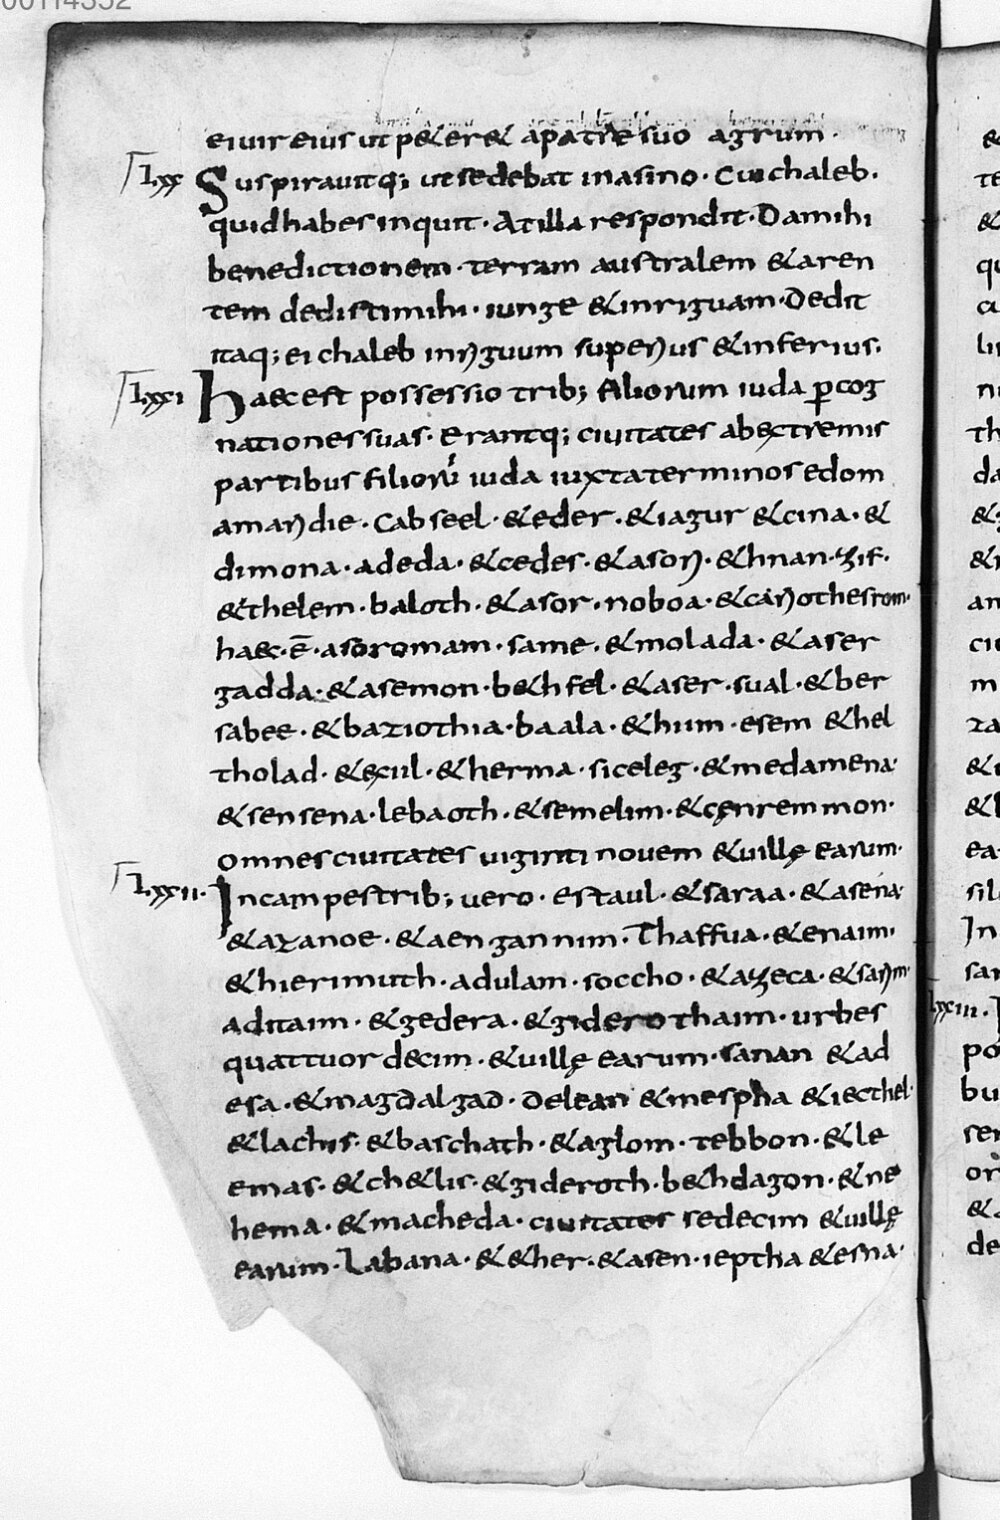 00114352
ei uir eius ut p&er& apatre suo agrum·
lxx Suspirauitq; ut sedebat inasino· Cui chaleb·
quid habes inquit· At illa respondit· Da mihi
benedictionem· terram australem & aren
tem dedisti mihi· iunge & inriguam· Dedit
itaq; ei chaleb inriguum superius & inferius·
lxxi Haec est possessio trib; filiorum iuda p cog
nationes suas· Erantq; ciuitates abextremis
partibus filioru iuda iuxta terminos edom
amaridie· Cabseel· & eder· & iagur & cina· &
dimona· adeda· & cedes· & asor· & hnan· zif·
& thelem· baloth· & asor· noboa· & cariothesrom·
haec· ē· asoromam· same· & molada· & aser
gadda· & asemon· b&hfel· & aser· sual· & ber
sabee· & baziothia· baala· & hum· esem & hel
tholad· & exiil· & herma· siceleg· & medamena·
& sensena· lebaoth· & semelim· & cęnremmon·
omnes ciuitates uiginti nouem & uillę earum·
lxxii· In campestrib; uero· estaul· & saraa· & asena·
& azanoe· & aengannim· Thaffua· & enaim·
& hierimuth· adulam· soccho· & azeca· & sarim·
aditaim· & gedera· & giderothaim· urbes
quattuordecim· & uillę earum· sanan & ad
esa· & magdalgad· delean & mespha & iecthel·
& lachis· & baschath· & aglom· tebbon· & le
emas· & ch&lis· & gideroth· b&hdagon· & ne
hema· & macheda· ciuitates sedecim & uillę
earum· Labana· & &her· & asen· ieptha & esna·